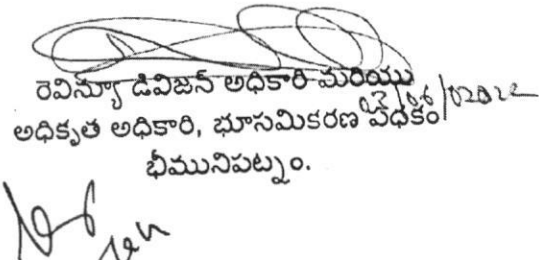 రెవిన్యూ డివిజన్ అధికారి మరియు
అధికృత అధికారి, భూసమికరణ పధకం
భీమునిపట్నం.